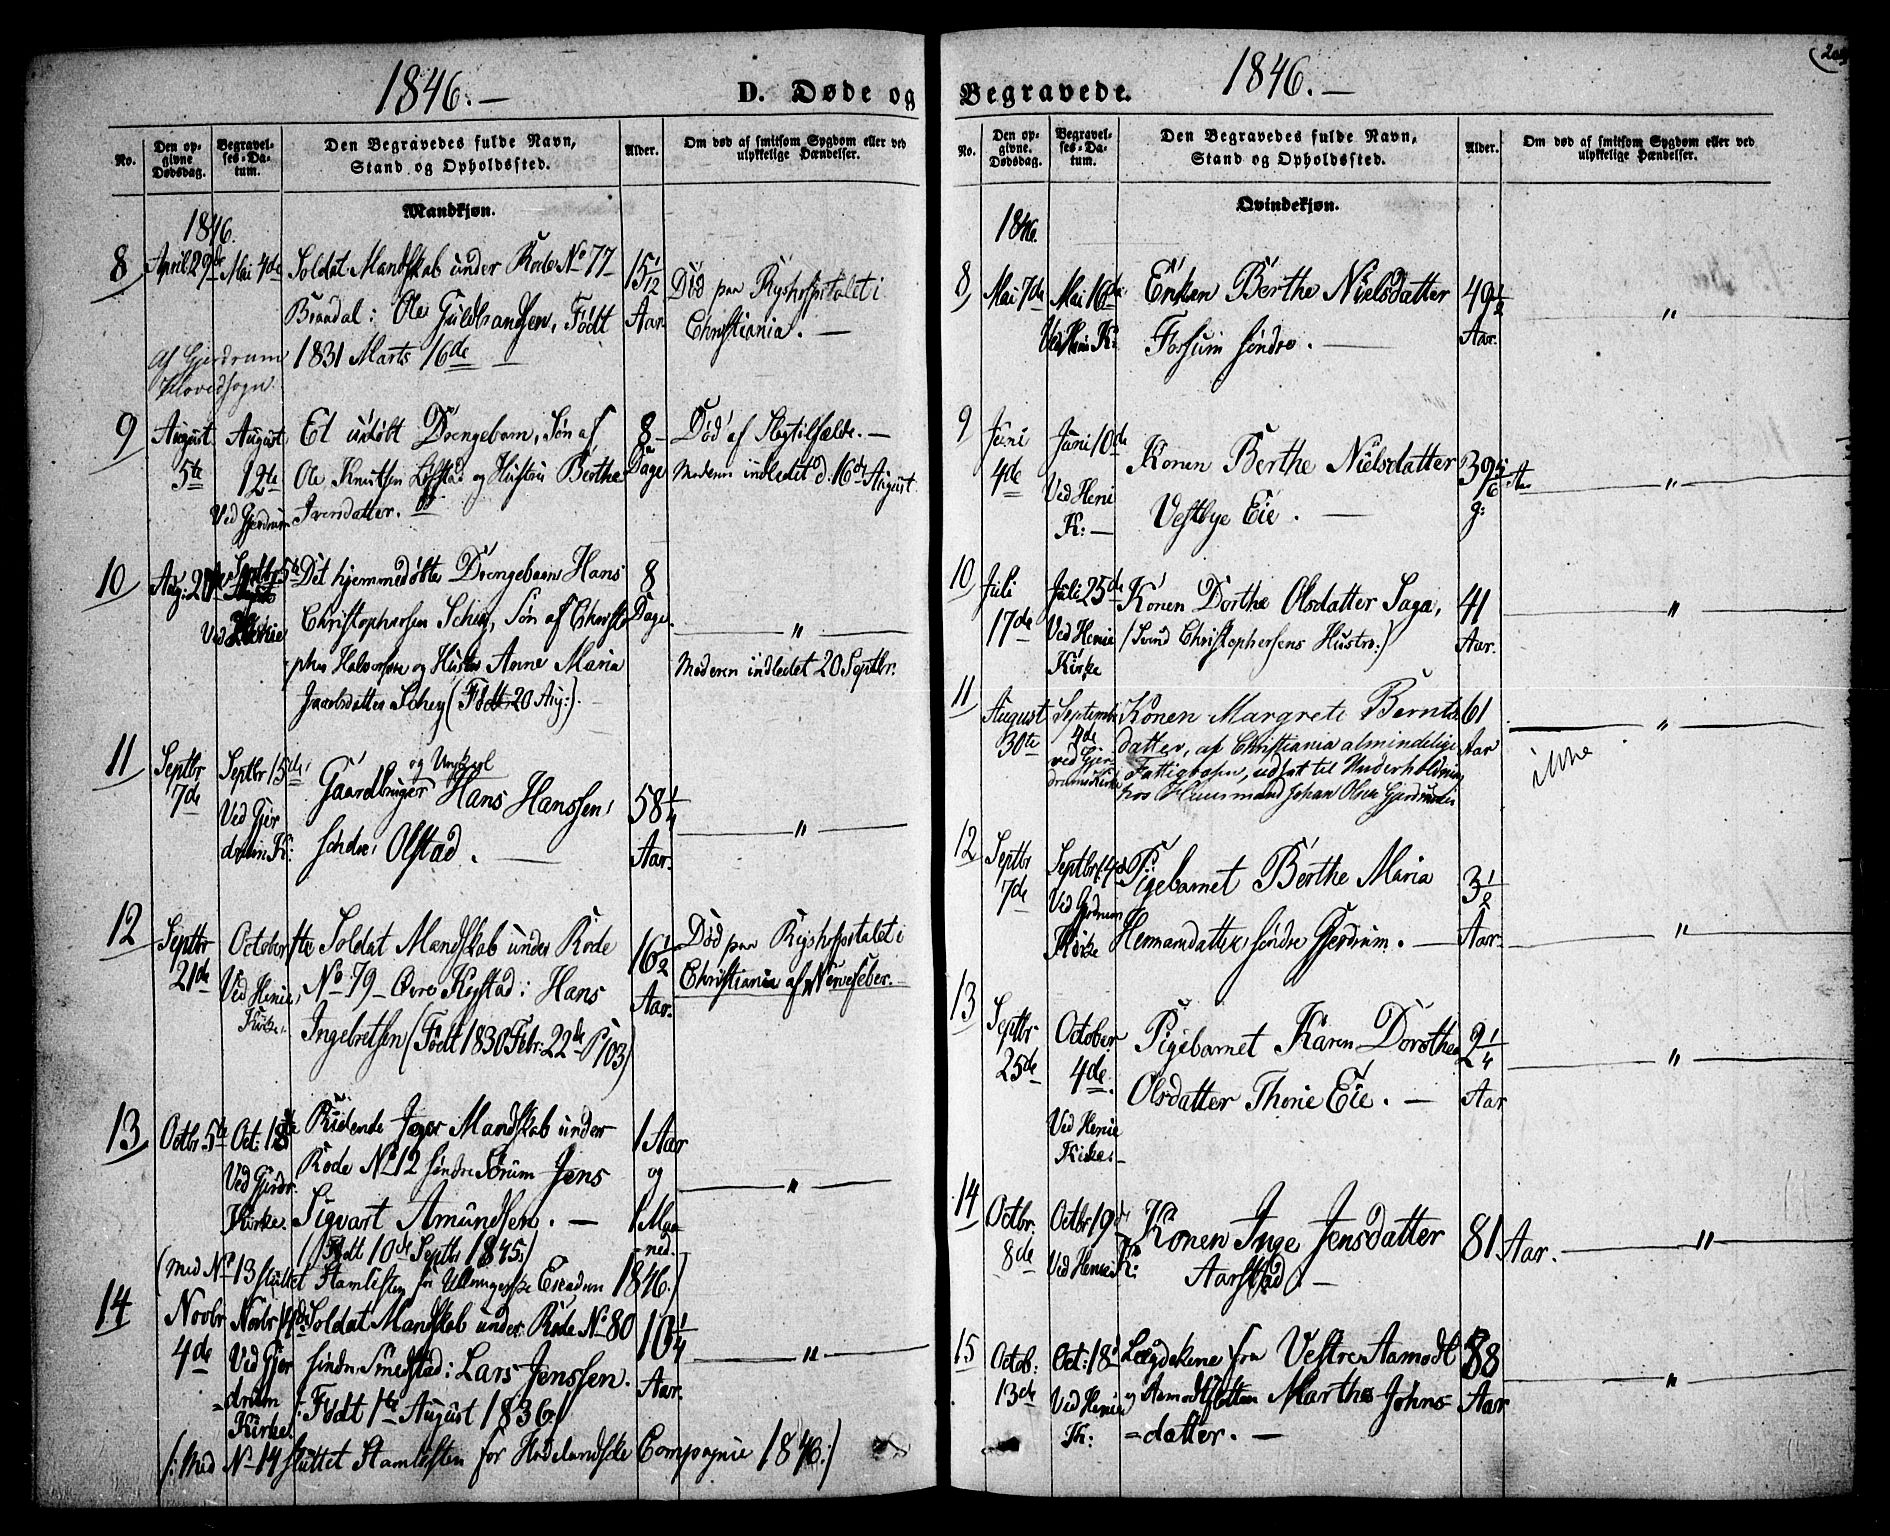 1846.—
D. Døde og
No.
Den op-
givne
Dødsdag.
Begravel-
ses-Da-
tum.
Den Begravedes fulde Navn,
Stand og Opholdssted.
Alder.
Om død af smitsom Sygdom eller ved
ulykkelige Hændelser.
Mandkjøn.
1846.
8
April 29de
Mai 4de
Soldat Mandskab under Rode No 77
Brandal: Ole Guldbrandsen, Født
1831 Marts 16de —
Af Gjerdrum
Hovedsogn
15 1/12
Aar
Død paa Rigshospitalet i
Christiania. —
9
August
5te
August
12te
Ved Gjerdrum
Et udøbt Drengebarn, Søn af
Ole Knutsen Løstad og Hustru Berthe
Iversdatter.
8
Dage
Død af Slagtilfælde. —
Moderen indledet d. 16de August
10
Aug: 28de
Septbr 5te
Ved Henie
Det hjemmedøbte Drengebarn Hans
Christophersen Schey, Søn af Christo
pher Halvorsen og Hustru Anne Maria
Schey (Født 20 Aug:).
8
Dage.
"
Moderen indledet 20 Septbr.
11
Septbr
7de
Septbr 15de
Ved Gjer
drum K:
og
Gaardbruger Hans Hanssen
søndre Olstad. —
58 1/4
Aar.
"
12
Septbr
21de
October 1te
Ved Henie
Kirke.
Soldat Mandskab under Rode
No 79 Øvre Kystad: Hans
Ingebretsen (Født 1830 Febr. 22de P 103)
16 1/2
Aar.
Død paa Rigshospitalet i
Christiania af Nervefeber. —
13
Octbr. 5te
Oct: 18de
Ved Gjerdr.
Kirke.
Ridende Jæger Mandskab under
Rode No 12 søndre Sørum Jens
Sigvart Amundsen. —
(Født 10de Septbr 1845.)
1 Aar
og
1 Maa
ned.
"
(Med No 13 sluttet Stamlisten for Escadron 1846.)
14
Novbr
4de
Novbr 14de
Ved Gjer
drum
Kirke.
Soldat Mandskab under Rode No 80
søndre Smedstad: Lars Jenssen.
(: Født 1te August 1836.)
10 1/4
Aar.
"
(: Med No 14 sluttet Stamlisten for Hadelandske Compagnie 1846:)
1846.—
Begravede.
No.
Den op-
givne.
Dødsdag.
Begravel-
ses-Da-
tum.
Den Begravedes fulde Navn,
Stand og Opholdssted.
Alder.
Om død af smitsom Sygdom eller ved
ulykkelige Hændelser.
Qvindekjøn.
1846.
8
Mai 7de
Mai 16de
Ved Heni K:
Enken Berthe Nielsdatter
Fossum søndre. —
49 1/2
Aar.
"
9
Juni
4de
Juni 10de
Ved Heni
K: —
Konen Berthe Nielsdatter
Vestbye Eie. —
39 5/6
Aar
"
10
Juli
17de
Juli 25de
Ved Henie
Kirke
Konen Dorthe Olsdatter Saga,
(Svend Christophersens Hustro:)
41
Aar.
"
11
August
30te
Septembr
4de
ved Gjer
drums Kirke
Konen Margrete Bernts
datter, af Christiania almindelige
Fattigvæsen, udsat til Underholdning
hos Huusmand Johan Olsen Gjerdrum
61
Aar
"
ikke
12
Septbr
7de
Septbr 14de
Ved Gjerdrum
Kirke
Pigebarnet Berthe Maria
Hermansdatter søndre Gjerdrum. —
3 1/2
Aar.
"
13
Septbr
25de
October
4de
Ved Henie
Kirke. —
Pigebarnet Karen Dorothea
Olsdatter Thorie Eie. —
2 1/4
Aar
"
14
Octbr.
8de
Octbr 19de
Ved Henie K:
Konen Inge Jensdatter
Aarstad. —
81 Aar.
"
15
Octob:
13de
Oct: 18de
Ved Henie
K:
Lægdskone fra Vestre Aamodt
og Aamodtslotten Marthe Johns-
datter. —
88
Aar
"